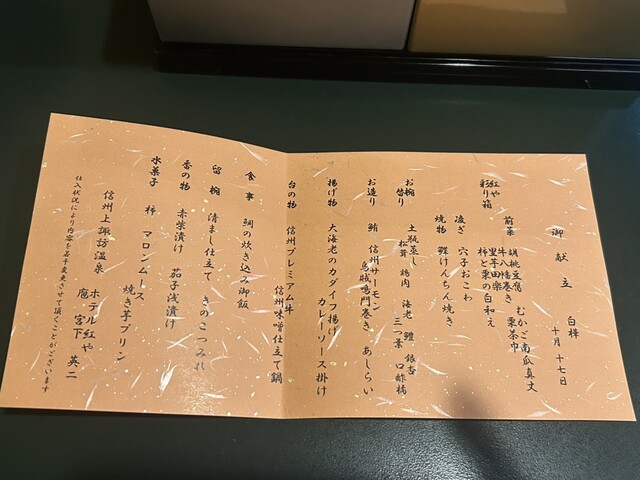 御献立
白樺
十月十七日
紅や
彩り箱
前菜 胡桃豆腐 むかご南瓜真丈
牛八幡巻き 栗茶巾
里芋田楽
柿と栗の白和え
凌ぎ 穴子おこわ
焼物 鰹けんちん焼き
お椀
替り 土瓶蒸し
松茸 鶏肉 海老 鱧 銀杏
三つ葉 口酢橘
お造り 鮪 信州サーモン
烏賊鳴門巻き あしらい
揚げ物 大海老のカダイフ揚げ
カレーソース掛け
台の物 信州プレミアム牛
信州味噌仕立て鍋
食事 鯛の炊き込み御飯
留椀 清まし仕立て きのこつみれ
香の物 赤柴漬け 茄子浅漬け
水菓子 柿 マロンムース
焼き芋プリン
信州上諏訪温泉
ホテル紅や
庵 宮下 英二
仕入状況により内容を若干変更させて頂くことがございます